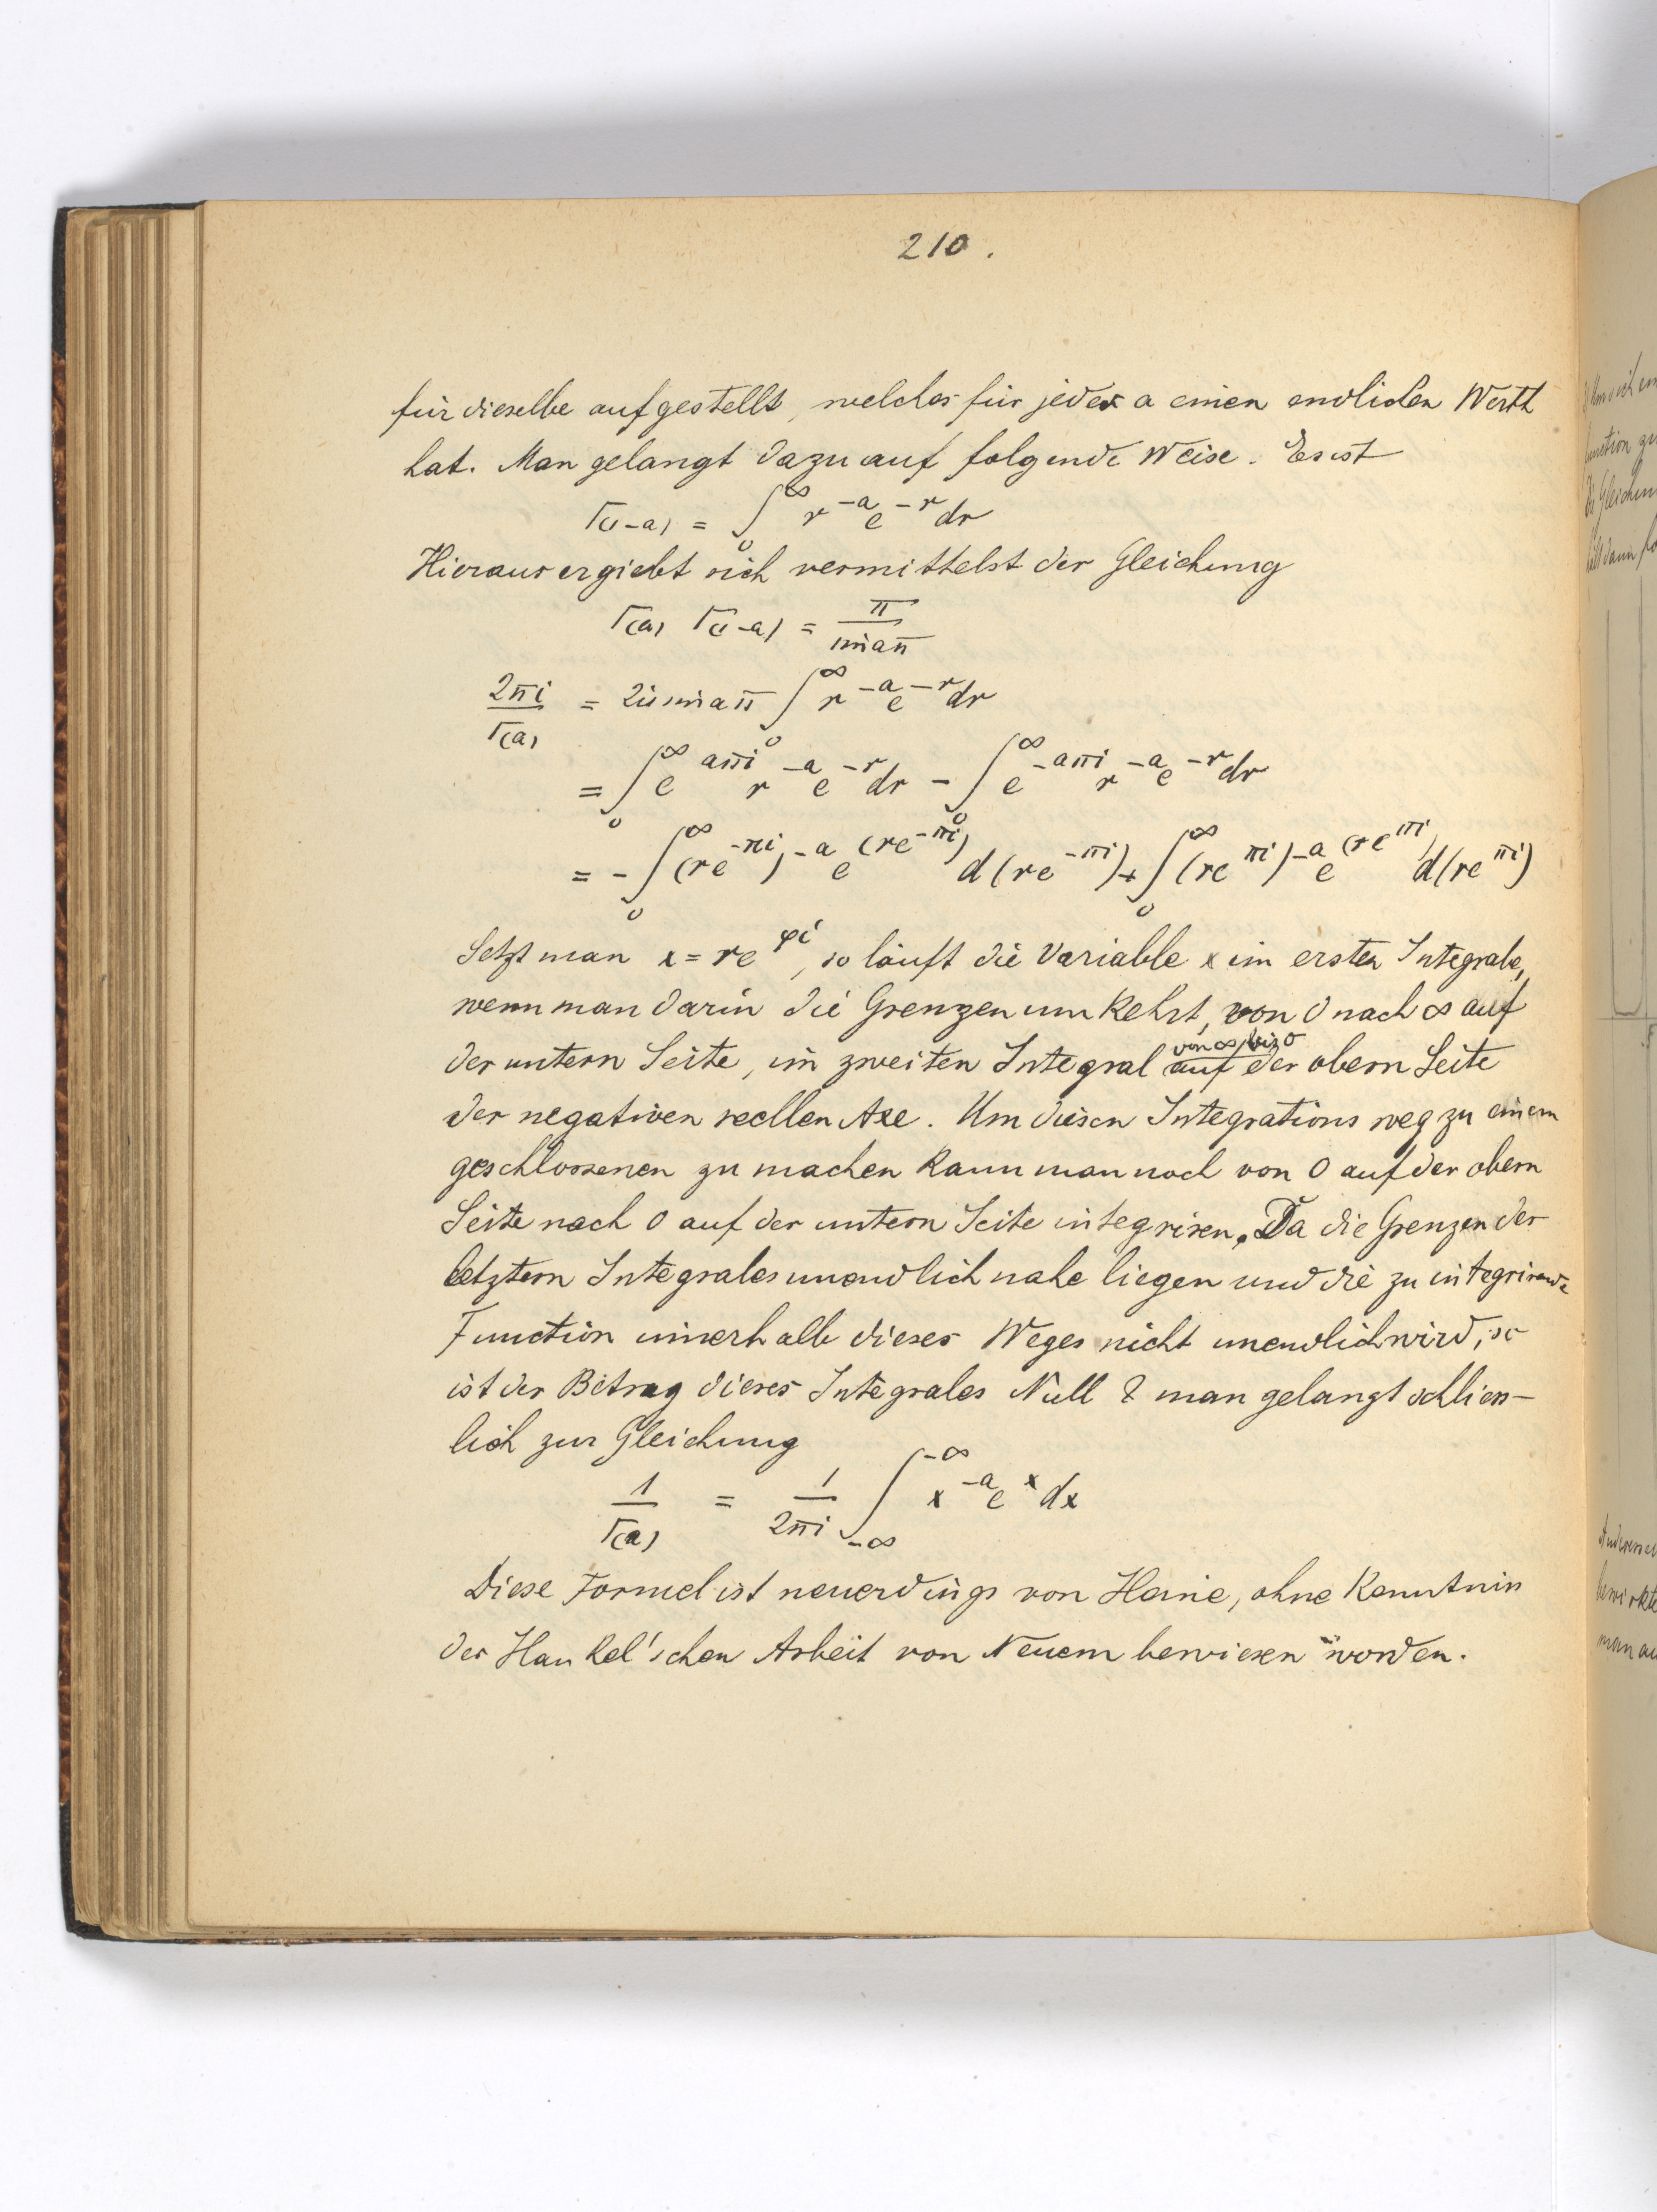 210.
für dieselbe aufgestellt, welches für jedes a einen endlichen Werth
hat. Man gelangt dazu auf folgende Weise. Es ist
Γ(1-a) = ∫₀^∞ r^{-a} e^{-r} dr
Hieraus ergiebt sich vermittelst der Gleichung
Γ(a) Γ(1-a) = π / sin aπ
2πi / Γ(a) = 2i sin aπ ∫₀^∞ r^{-a} e^{-r} dr
= ∫₀^∞ e^{aπi} r^{-a} e^{-r} dr - ∫₀^∞ e^{-aπi} r^{-a} e^{-r} dr
= - ∫₀^∞ (re^{-πi})^{-a} e^{(re^{-πi})} d(re^{-πi}) + ∫₀^∞ (re^{πi})^{-a} e^{(re^{πi})} d(re^{πi})
Setzt man x = re^{φi}, so läuft die Variable x im ersten Integrale,
wenn man darin die Grenzen umkehrt, von 0 nach ∞ auf
der untern Seite, im zweiten Integral von ∞ bis 0 auf der obern Seite
der negativen reellen Axe. Um diesen Integrationsweg zu einem
geschlossenen zu machen kann man noch von 0 auf der obern
Seite nach 0 auf der untern Seite integriren. Da die Grenzen der
letztern Integrales unendlich nahe liegen und die zu integrirende
Function innerhalb dieses Weges nicht unendlich wird, so
ist der Betrag dieses Integrales Null & man gelangt schliess-
lich zur Gleichung
1 / Γ(a) = 1 / 2πi ∫_{-∞}^{-∞} x^{-a} e^x dx
Diese Formel ist neuerdings von Heine, ohne Kenntniss
der Hankel'schen Arbeit von Neuem bewiesen worden.